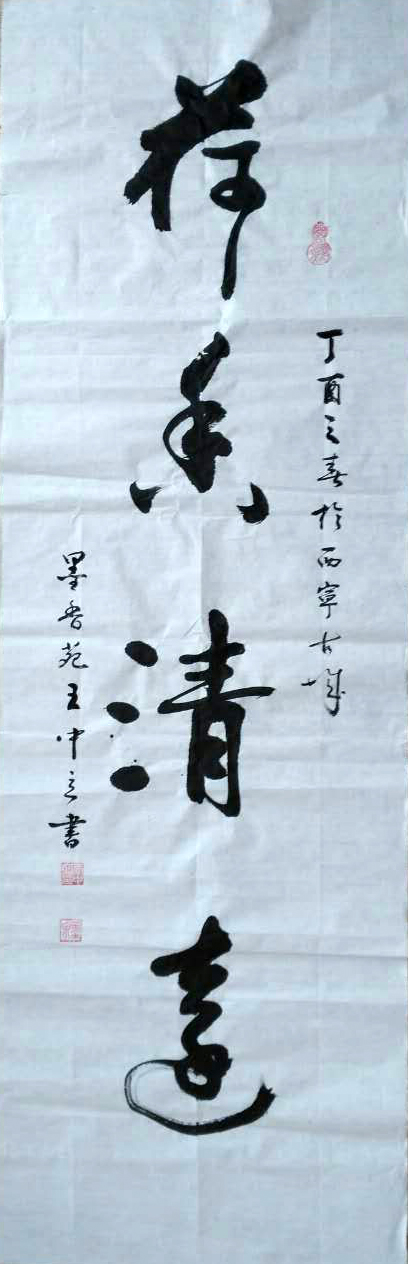 丁酉之春於西寧古城
荷香清遠
墨香苑王中立書